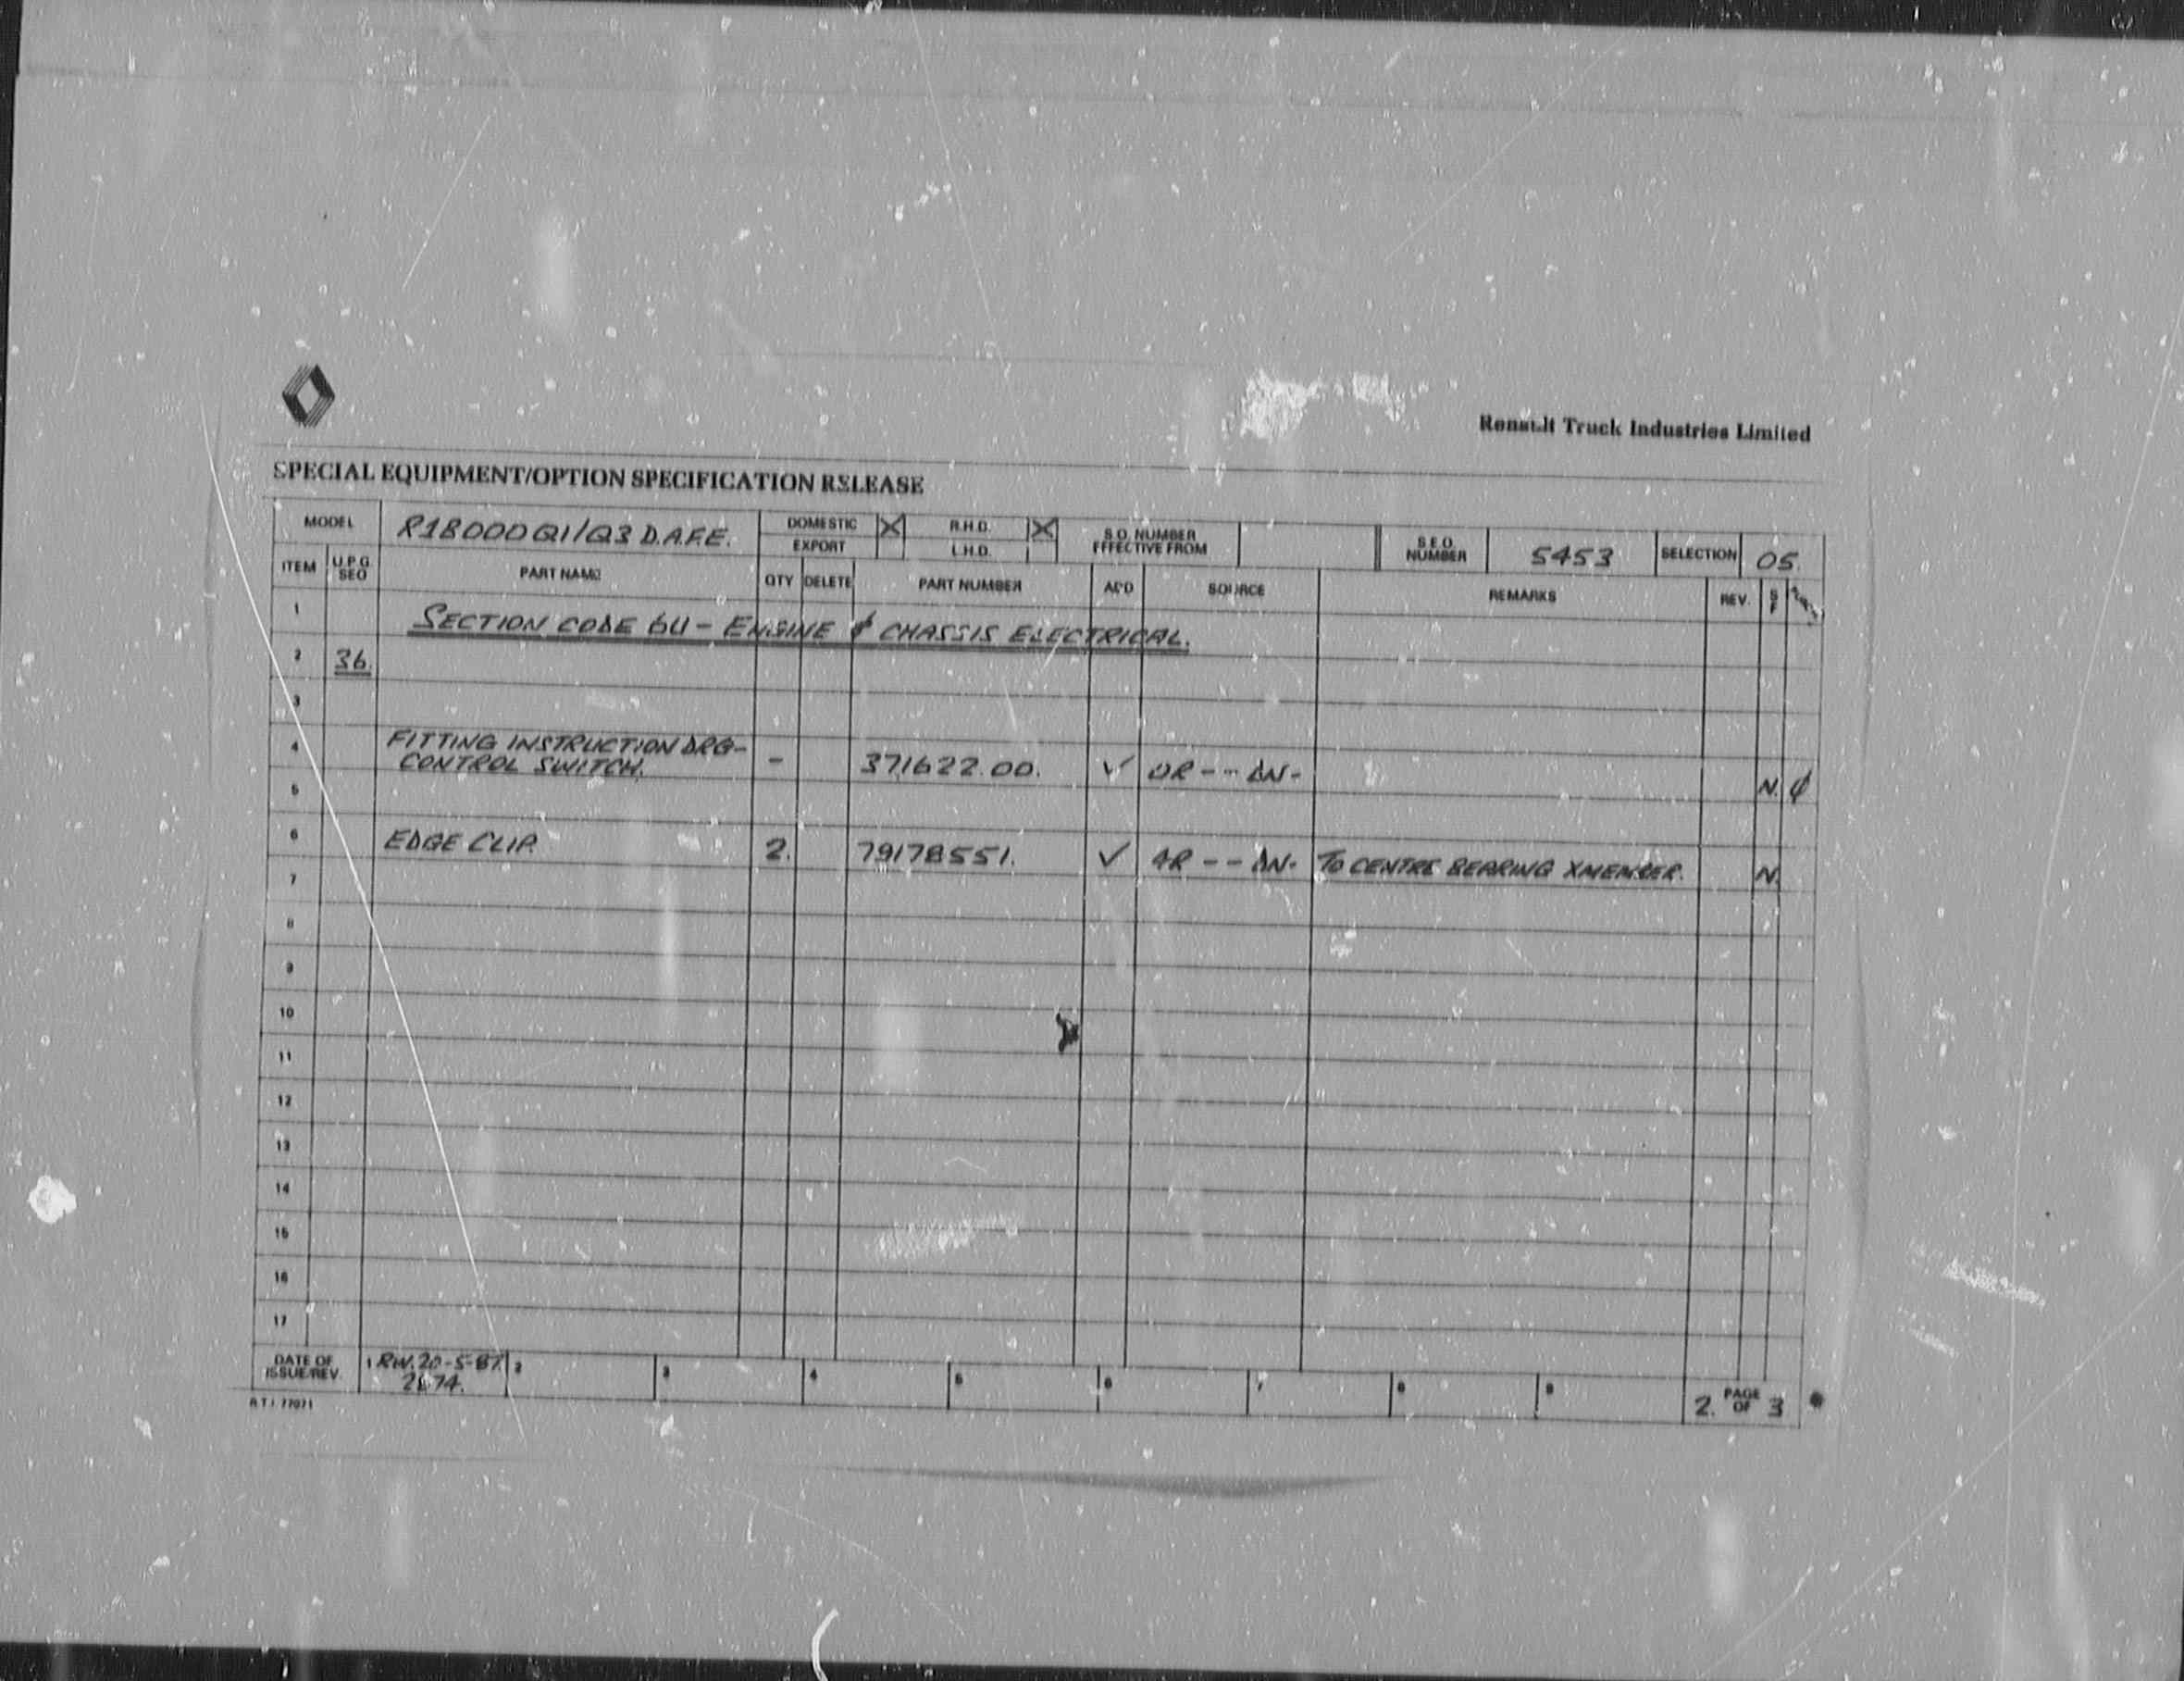 Renault Truck Industries Limited
SPECIAL EQUIPMENT/OPTION SPECIFICATION RELEASE
MODEL R1800DQ1/Q3 D.A.F.E. DOMESTIC X R.H.D. X S.O. NUMBER EFFECTIVE FROM S.E.O. NUMBER 5453 SELECTION 05.
EXPORT L.H.D.
ITEM U.P.G. SEO PART NAME QTY DELETE PART NUMBER ADD SOURCE REMARKS REV. S F
1 SECTION CODE 6U - ENGINE & CHASSIS ELECTRICAL.
2 36.
3
4 FITTING INSTRUCTION DRG-
CONTROL SWITCH. - 371622.00. ✓ OR -- DN- N. ϕ
5
6 EDGE CLIP. 2. 79178551. ✓ 4R -- DN- TO CENTRE BEARING XMEMBER. N.
7
8
9
10
11
12
13
14
15
16
17
DATE OF ISSUE/REV. 1 RW. 20-5-87. 2 3 4 5 6 7 8 9 2. PAGE OF 3
2674.
R.T.I. 77071